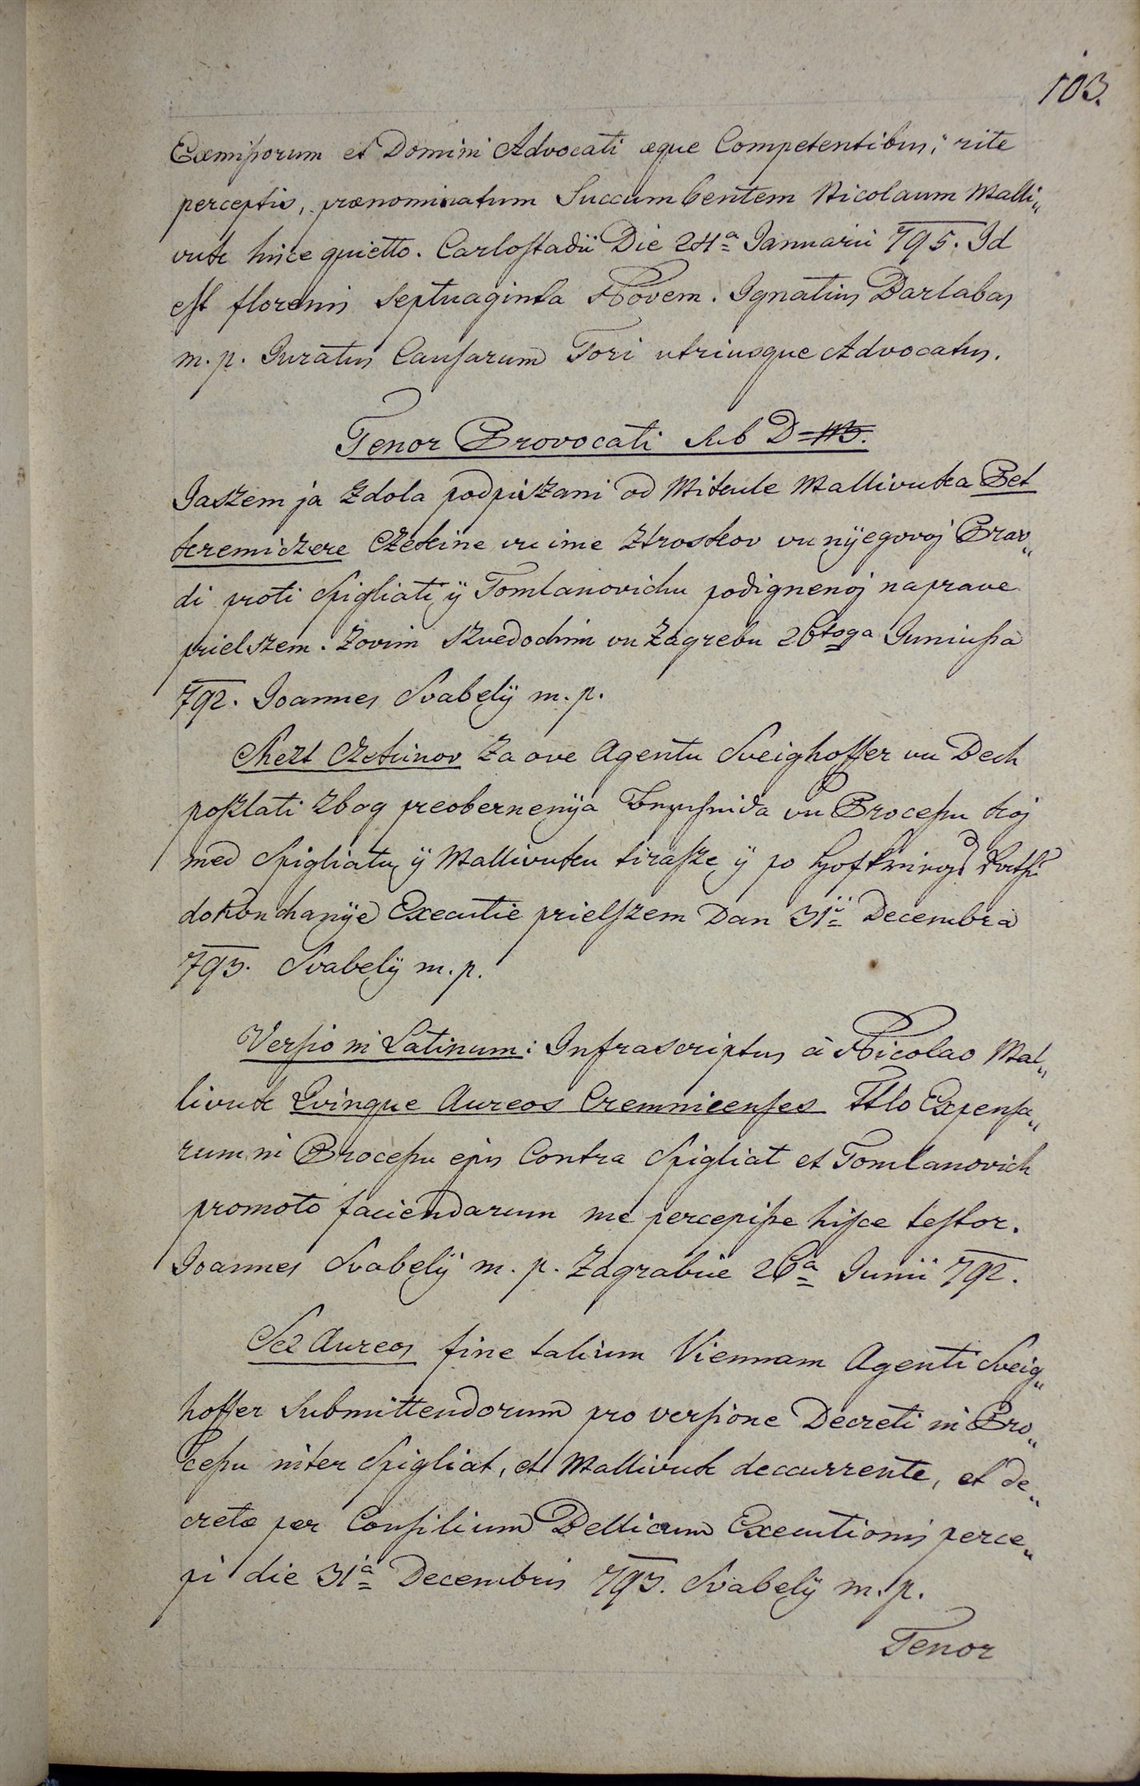 103.
Exmissorum et Domini Advocati æque Competentibus; rite
perceptis, prænominatum Succumbentem Nicolaum Malli„
vuk hisce quietto. Carlostadii Die 24ª Januarii 795. Id
est florenis Septuaginta Novem. Ignatius Barlabas
m. p. Juratus Causarum Fori utriusque Advocatus.
Tenor Provocati Sub D
Jaszem ja Zdola podpiszani od Mikule Mallivuka Pet
kremichere Czekine vu ime Ztroskov vu nyegovoj Prav„
di proti Spigliatu ÿ Tomlanovichu podignenoj naprave
prielszem. Zovim Szvedochim vu Zagrebu 26toga Juniussa
792. Joannes Svabelÿ m. p.
Shezt Czekinov Za ove Agentu Sveighoffer vu Bech
poszlati zbog preobernenÿa vu Processu koj
med Spigliatu ÿ Mallivuku tirasze ÿ po
dokonchanÿe Executie prielszem Dan 31ⁱⁱ Decembra
793. Svabelÿ m. p.
Versio in Latinum: Infrascriptus à Nicolao Mal„
livuk Quinque Aureos Cremnicenses Ttlo Expensa„
rum in Processu ejus Contra Spigliat et Tomlanovich
promoto faciendarum me percepisse hisce testor.
Joannes Svabelÿ m. p. Zagrabiæ 26ª Junii 792.
Sex Aureos fine talium Viennam Agenti Sveig„
hoffer Submittendorum pro versione Decreti in Pro„
cessu inter Spigliat, et Mallivuk decurrente, et de„
cretæ per Consilium Bellicum Executionis perce„
pi die 31ª Decembris 793. Svabelÿ m. p.
Tenor